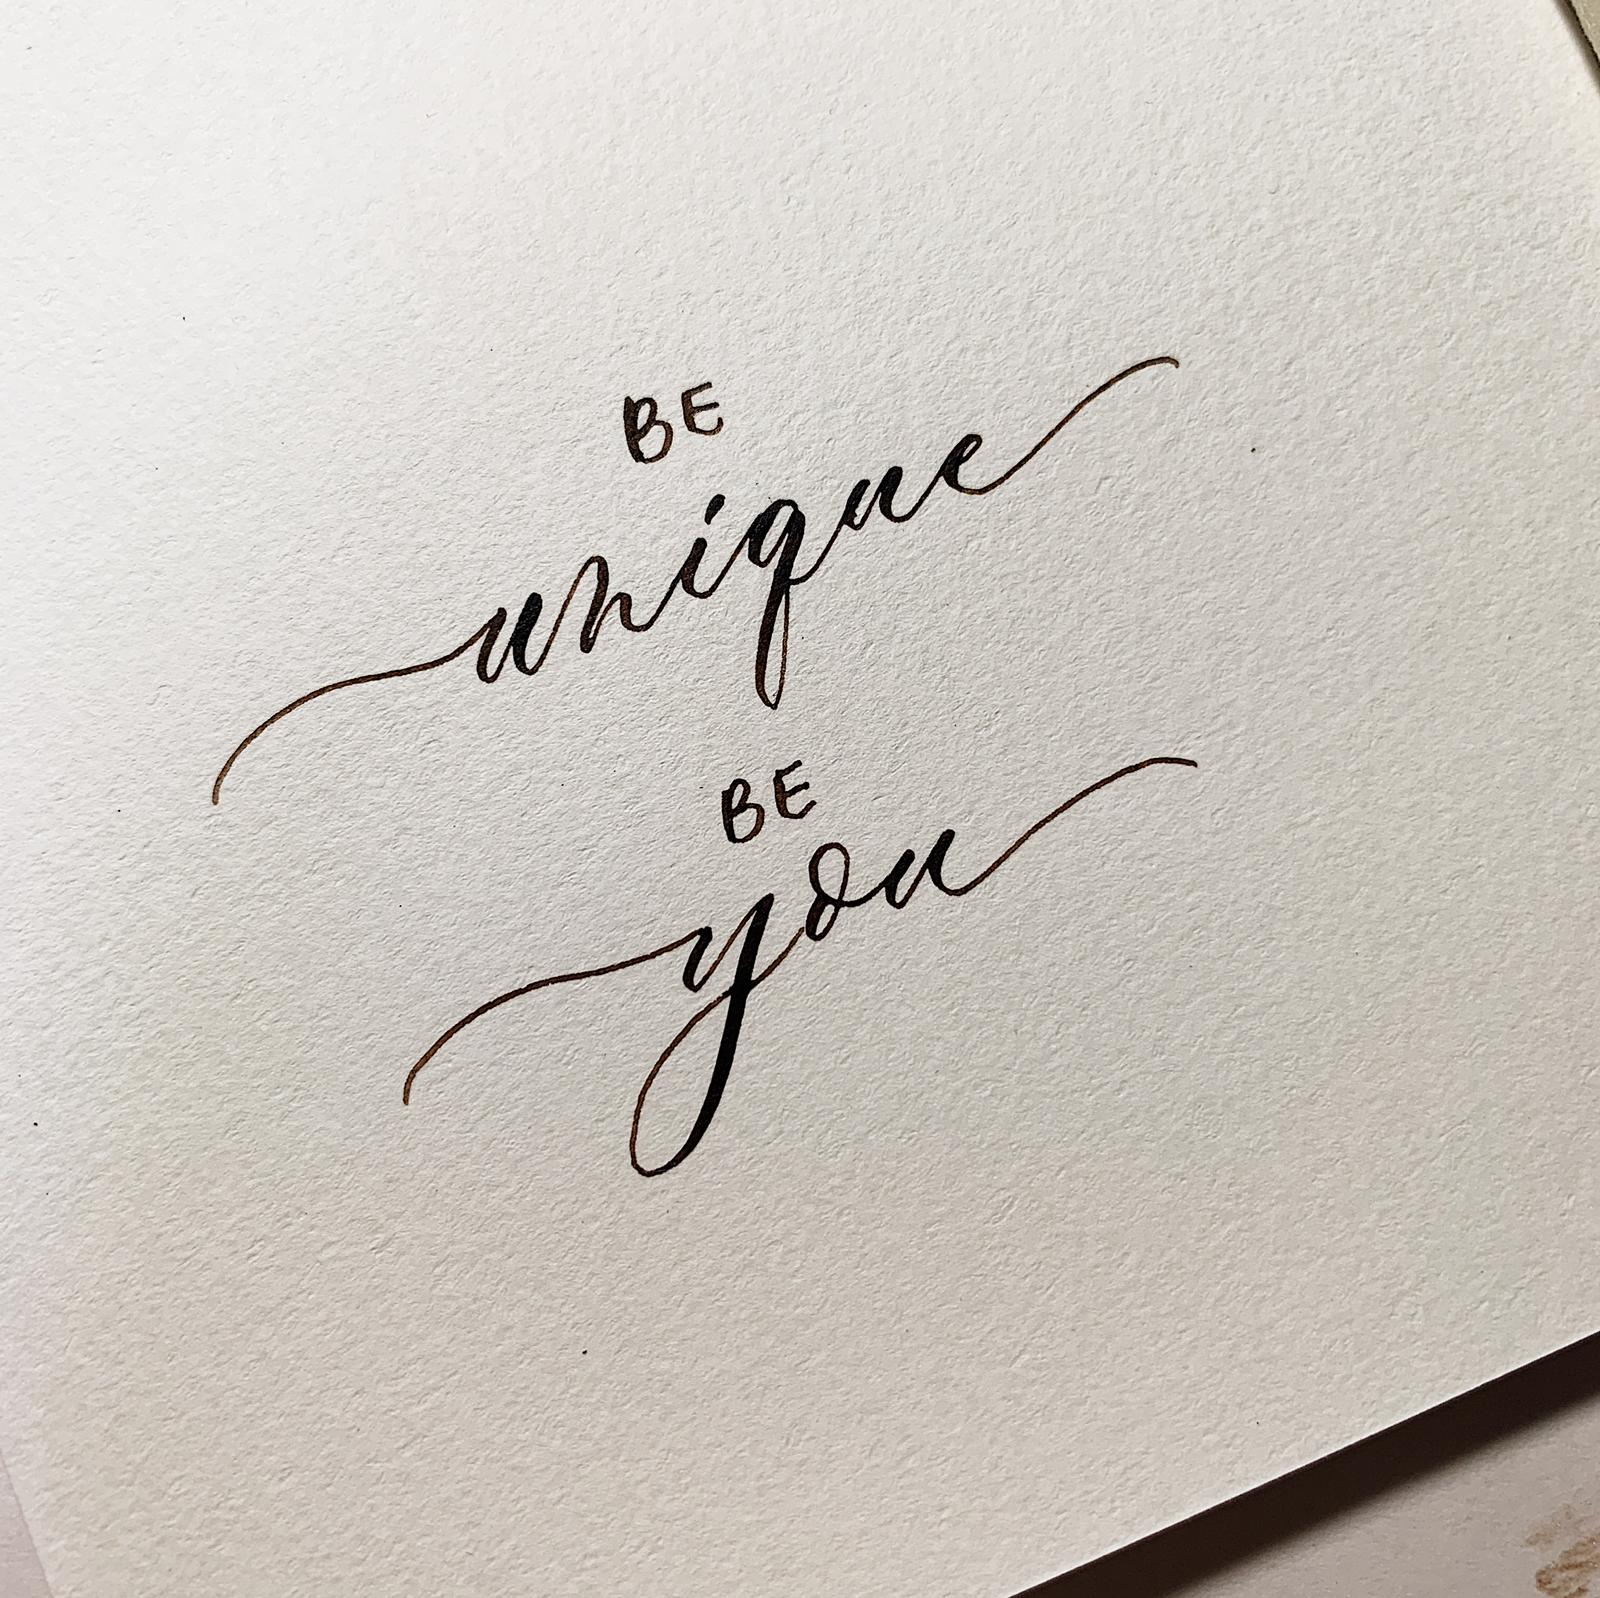 BE
unique
BE
you